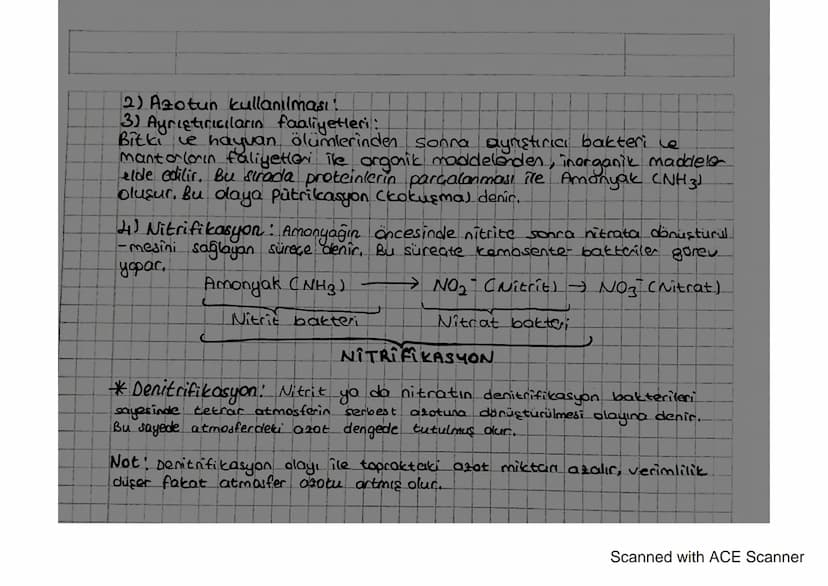 2) Azotun kullanılması:
3) Ayrıştırıcıların faaliyetleri:
Bitki ve hayvan ölümlerinden sonra ayrıştırıcı bakteri ve
mantarların faliyetleri ile organik maddelerden, inorganik maddeler
elde edilir. Bu sırada proteinlerin parçalanması ile Amonyak (NH3)
oluşur. Bu olaya pütrikasyon (kokuşma) denir.
4) Nitrifikasyon: Amonyağın öncesinde nitrite sonra nitrata dönüştürül
-mesini sağlayan sürece denir. Bu süreçte kemosente- bakteriler görev
yapar.
Amonyak (NH3) → NO2⁻ (Nitrit) → NO3⁻ (Nitrat)
Nitrit bakteri Nitrat bakteri
NİTRİFİKASYON
* Denitrifikasyon: Nitrit ya da nitratın denitrifikasyon bakterileri
sayesinde tekrar atmosferin serbest azotuna dönüştürülmesi olayına denir.
Bu sayede atmosferdeki azot dengede tutulmuş olur.
Not: Denitrifikasyon olayı ile topraktaki azot miktarı azalır, verimlilik
düşer fakat atmosfer azotu artmış olur.
Scanned with ACE Scanner